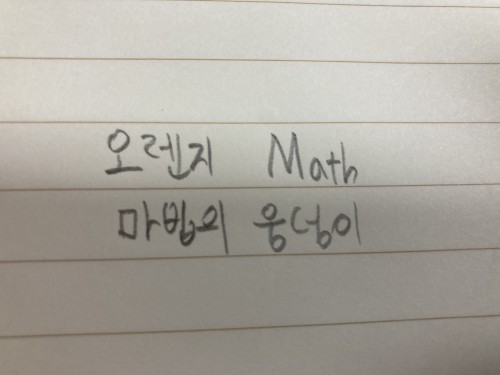 오렌지 Math
마법의 웅덩이